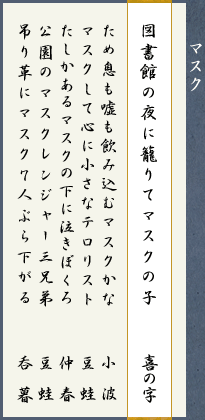 マスク
図書館の夜に籠りてマスクの子 喜の字
ため息も嘘も飲み込むマスクかな 小波
マスクして心に小さなテロリスト 豆蛙
たしかあるマスクの下に泣きぼくろ 仲春
公園のマスクレンジャー三兄弟 豆蛙
吊り革にマスク7人ぶら下がる 呑暮